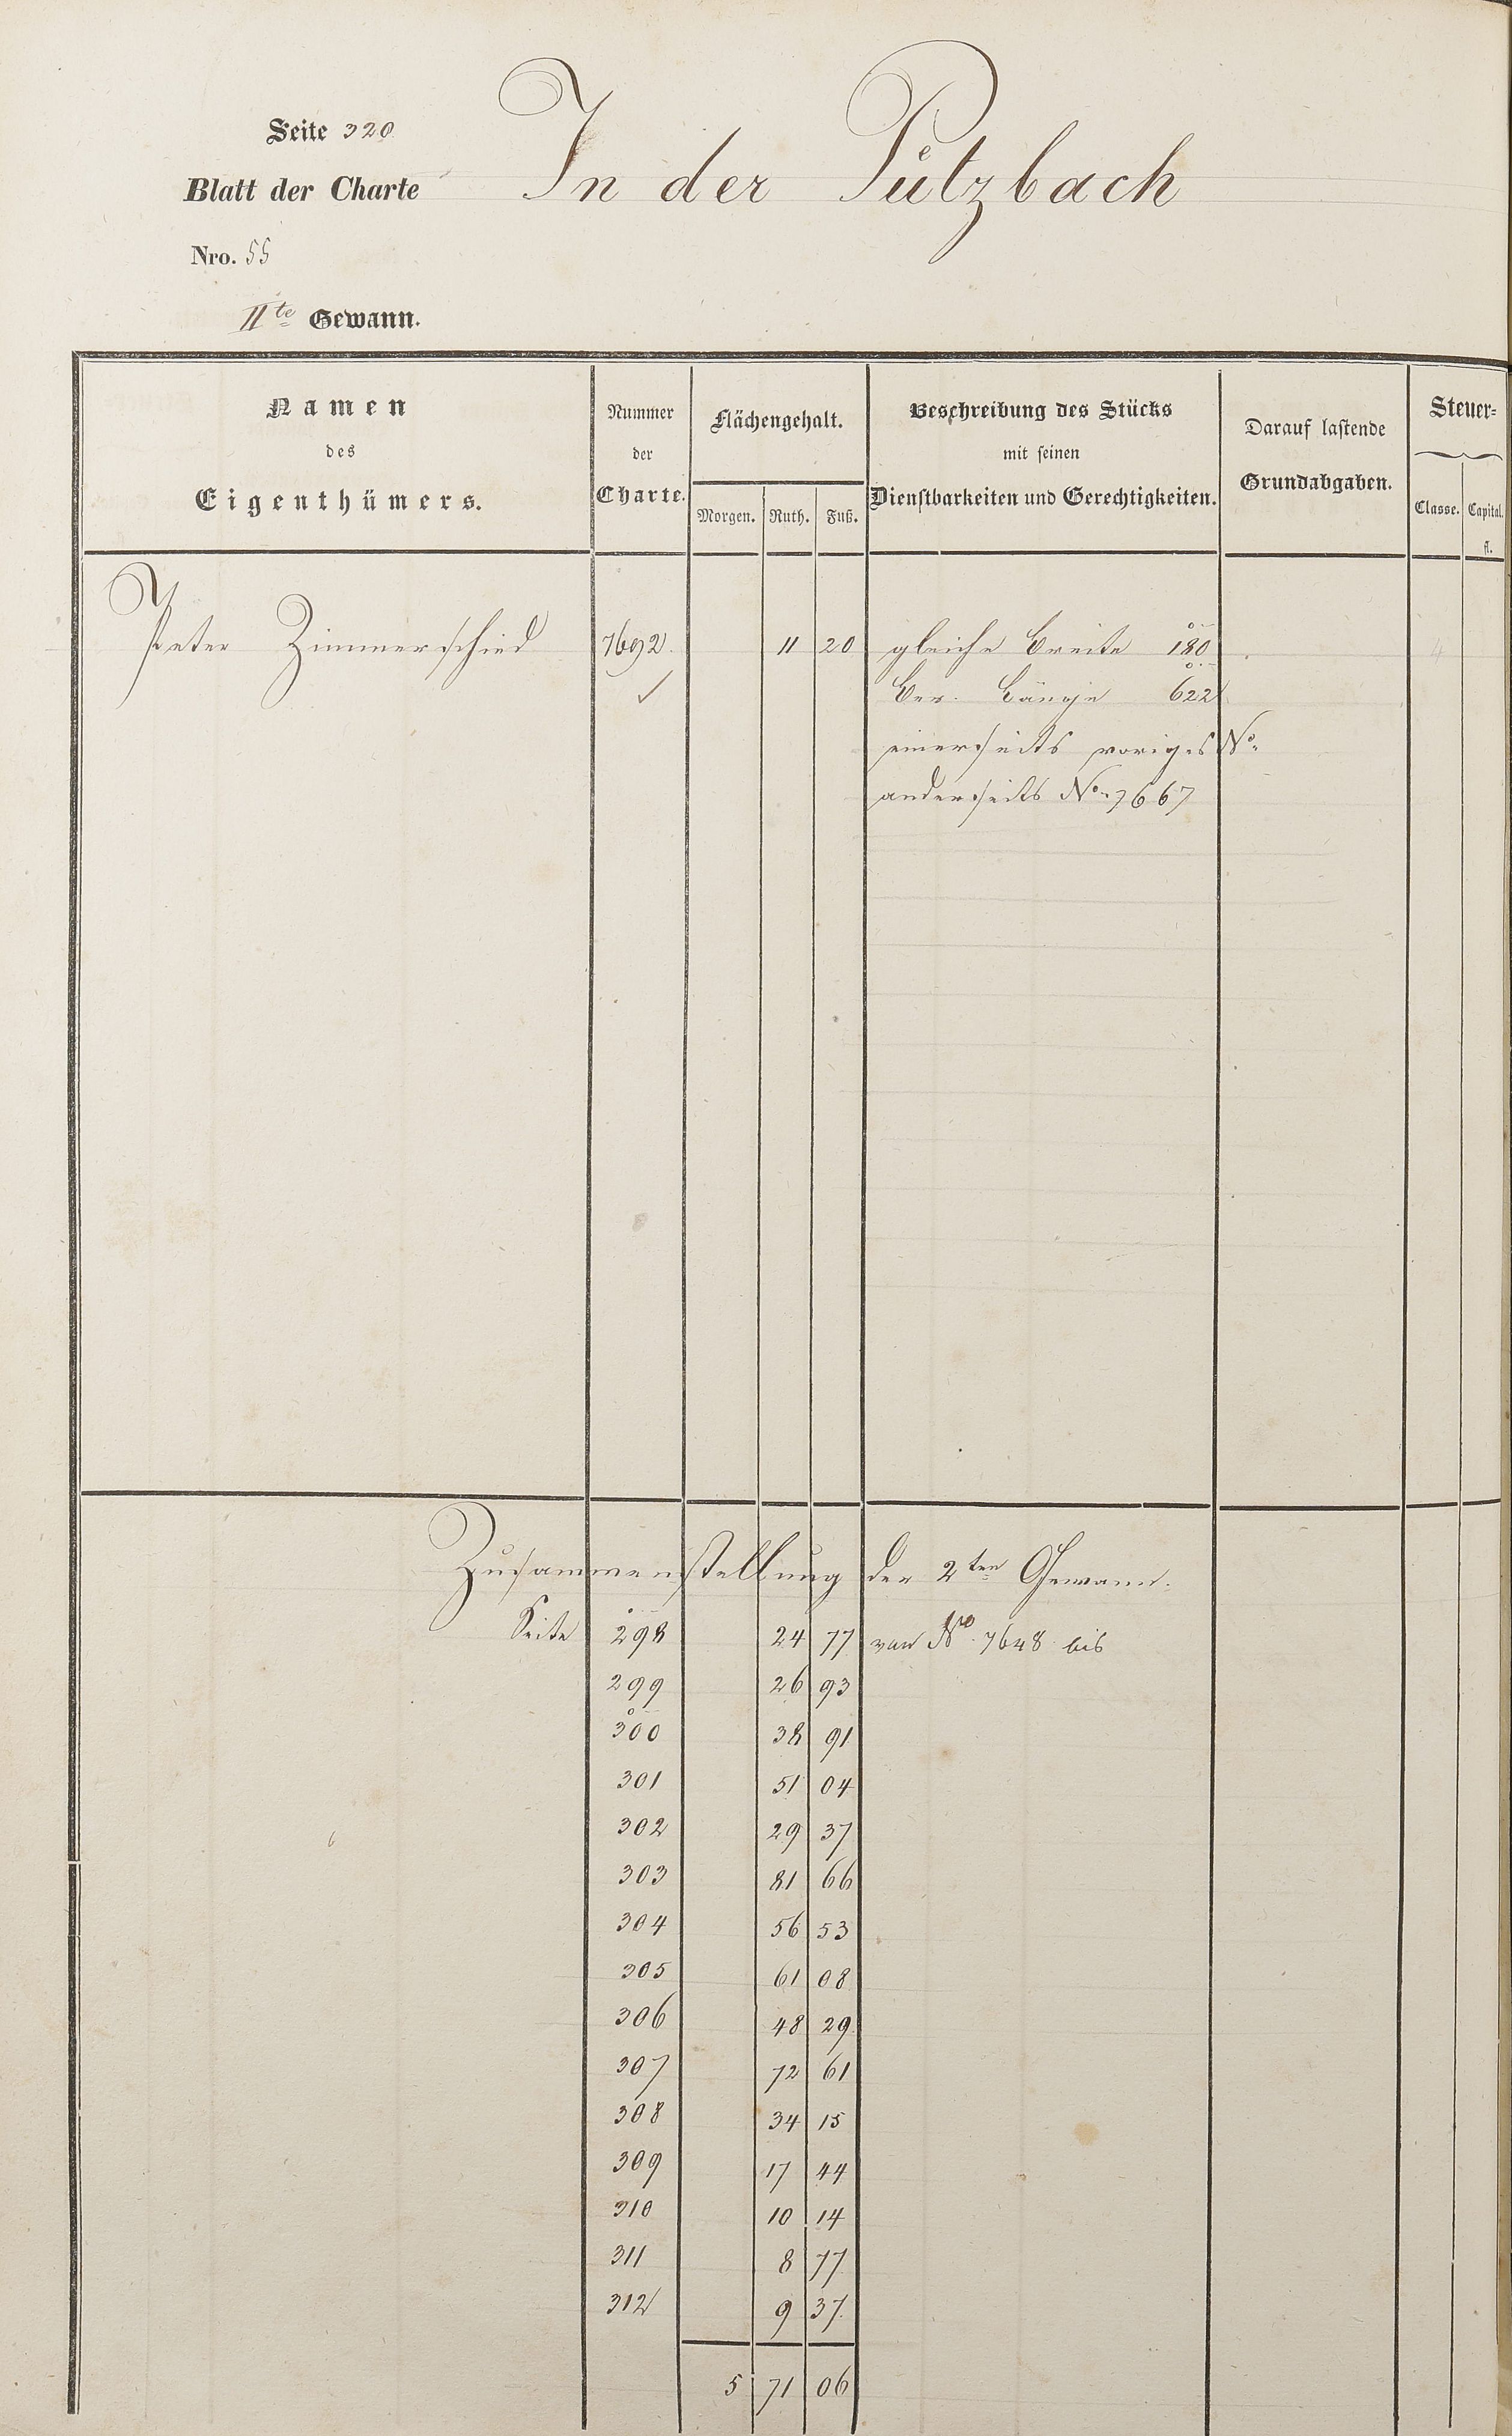 Seite 320
Blatt der Charte
In der Pützbach
Nro. 55
IIte Gewann.
Namen
des
Eigenthümers.
Nummer
der
Charte.
Flächengehalt.
Morgen. Ruth. Fuß.
Beschreibung des Stücks
mit seinen
Dienstbarkeiten und Gerechtigkeiten.
Darauf lastende
Grundabgaben.
Steuer=
Classe. Capital.
fl.
Peter Zimmerschied 7692. 11 20 gleiche Breite 180 4
Ber. Länge 622
einerseits voriges No.
anderseits No. 7667
Zusammenstellung der 2ten Gewann.
Seite 298 24 77 von No. 7648 bis
299 26 93
300 38 91
301 51 04
302 29 37
303 81 66
304 56 53
305 61 08
306 48 29
307 72 61
308 34 15
309 17 44
310 10 14
311 8 77
312 9 37
5 71 06